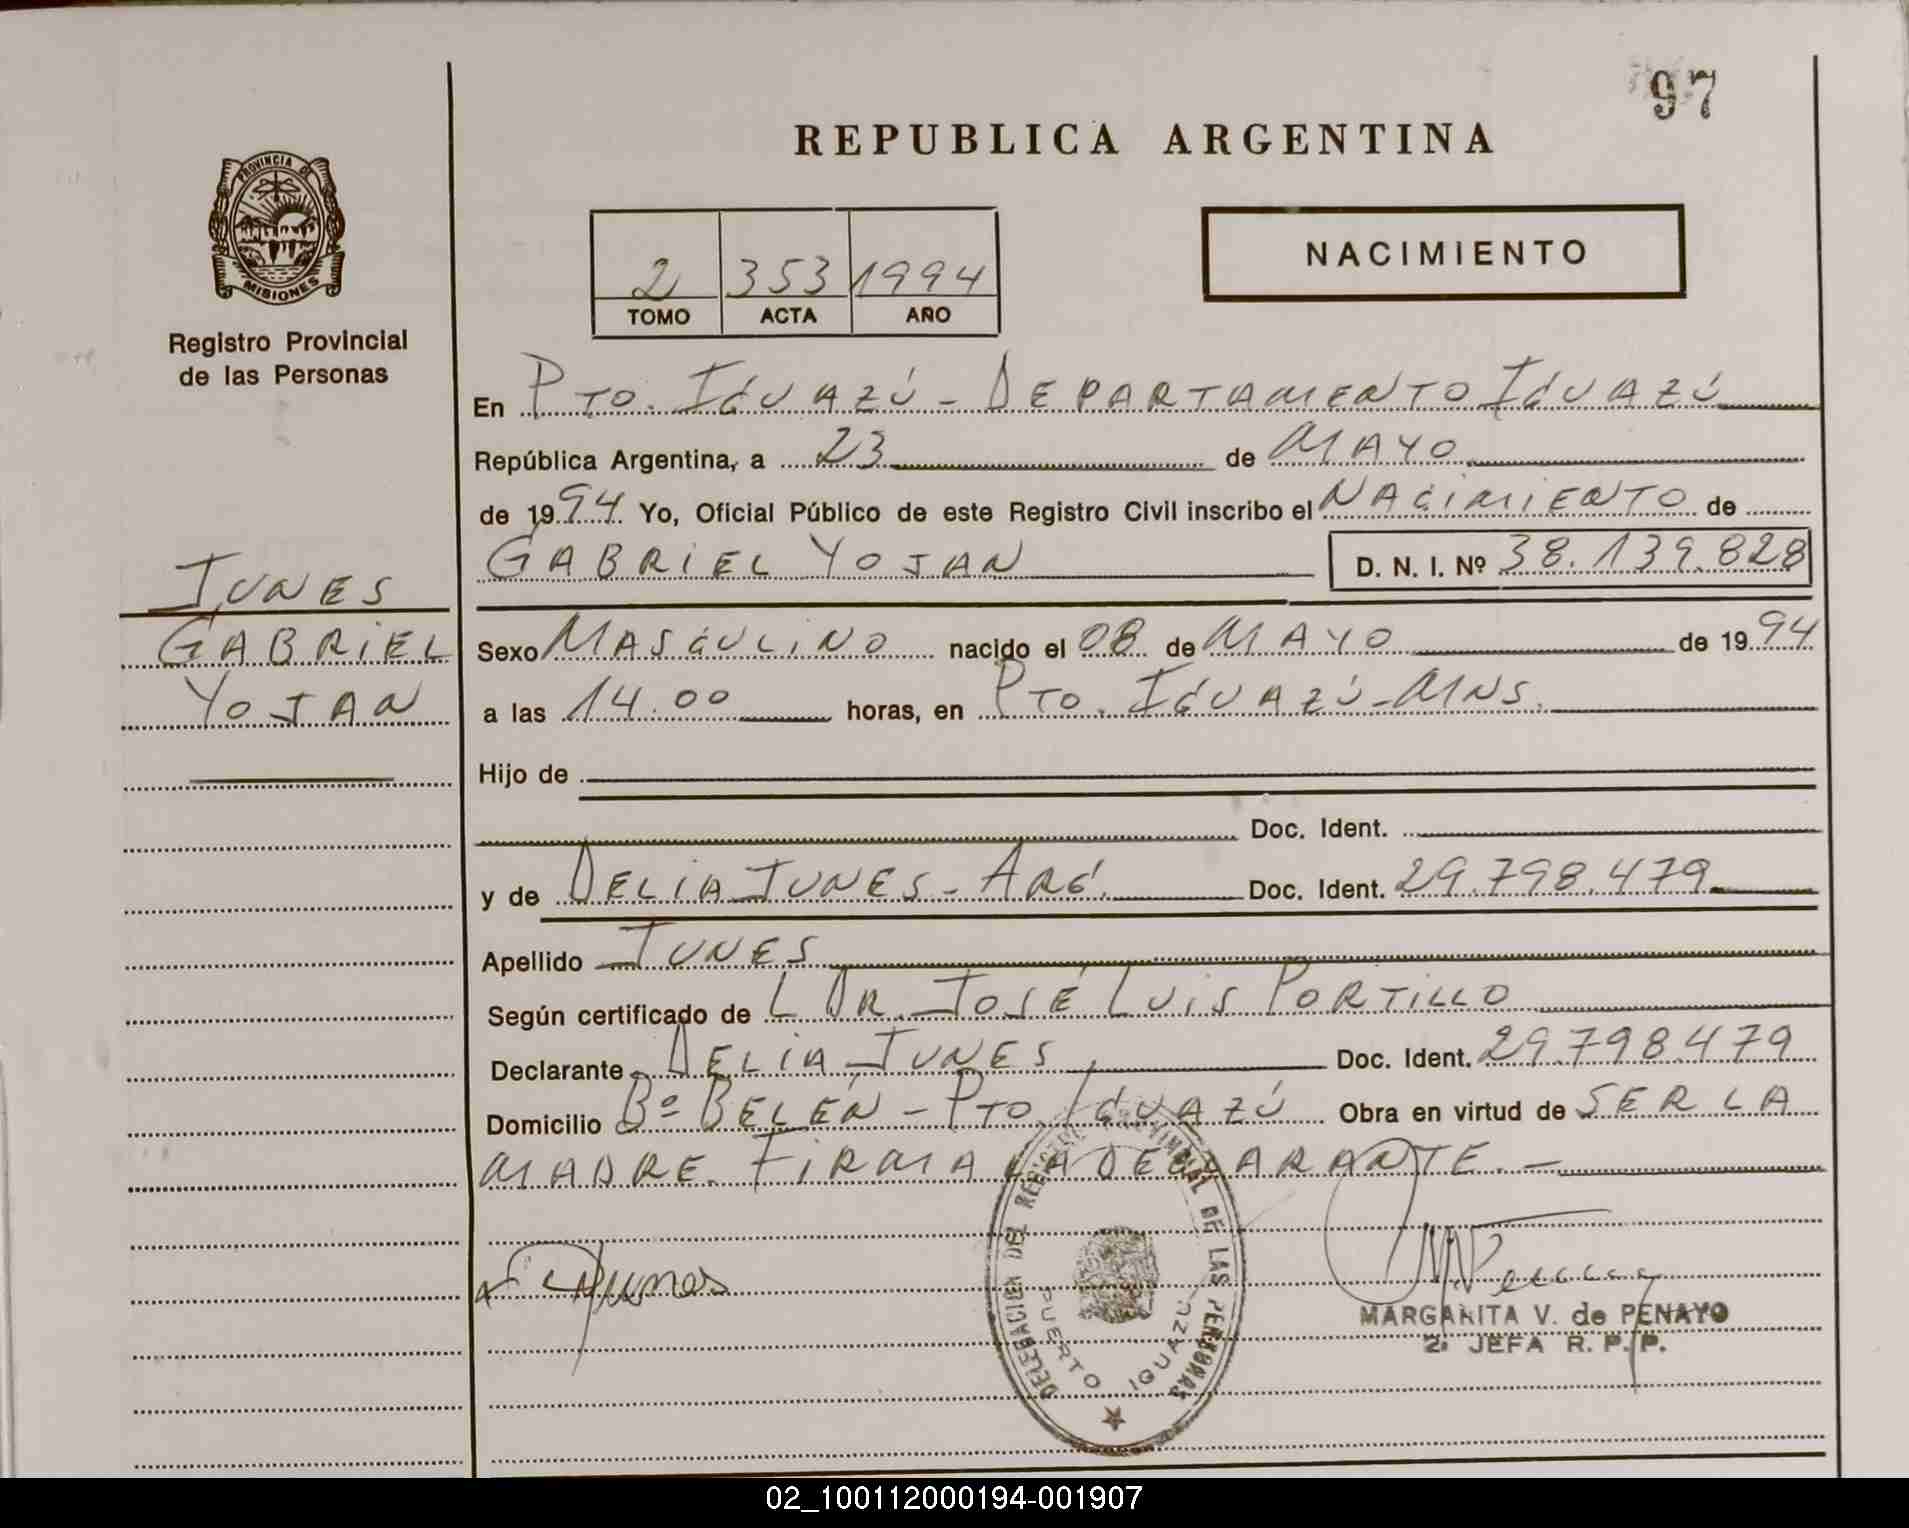 97
REPUBLICA ARGENTINA
PROVINCIA DE
MISIONES
Registro Provincial
de las Personas
NACIMIENTO
2 353 1994
TOMO ACTA AÑO
En PTO. IGUAZÚ - DEPARTAMENTO IGUAZÚ
República Argentina, a 23 de MAYO
de 1994 Yo, Oficial Público de este Registro Civil inscribo el NACIMIENTO de
GABRIEL YOJAN D. N. I. Nº 38.139.828
JUNES
GABRIEL
YOJAN
Sexo MASCULINO nacido el 08 de MAYO de 1994
a las 14.00 horas, en PTO. IGUAZÚ - MNS.
Hijo de
Doc. Ident.
y de DELIA JUNES - ARG. Doc. Ident. 29.798.479
Apellido JUNES
Según certificado de L DR. JOSÉ LUIS PORTILLO
Declarante DELIA JUNES, Doc. Ident. 29.798.479
Domicilio Bº BELÉN - PTO. IGUAZÚ Obra en virtud de SER LA
MADRE. FIRMA LA DECLARANTE. -
DELEGACION DEL REGISTRO PROVINCIAL DE LAS PERSONAS
PUERTO IGUAZU
MARGARITA V. de PENAYO
2ª JEFA R. P. P.
02_100112000194-001907